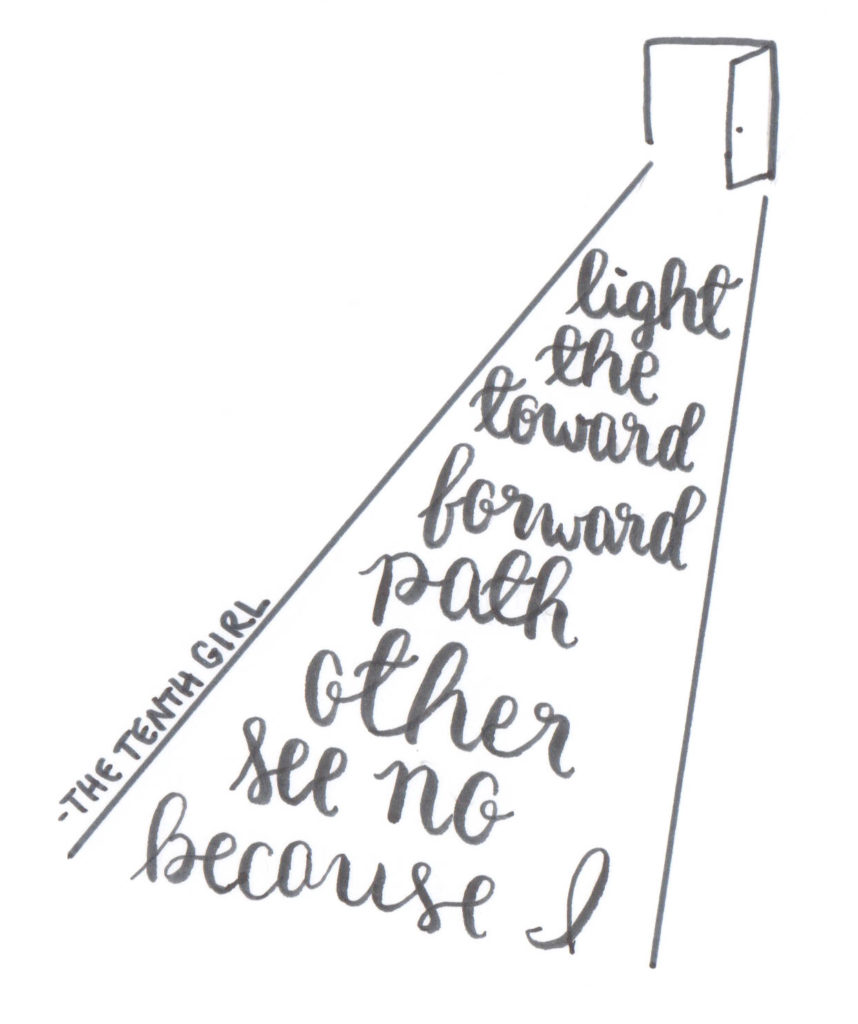 because I
see no
other
path
forward
toward
the
light
-THE TENTH GIRL